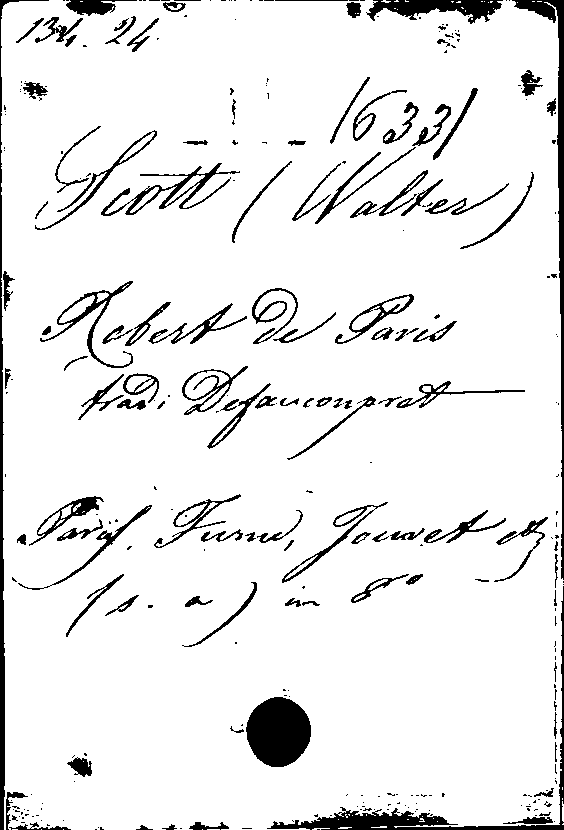 134. 24
1633
Scott (Walter)
Robert de Paris
trad. Defauconpret
Paris. Furne, Jouvet et
(s. a) in 8º